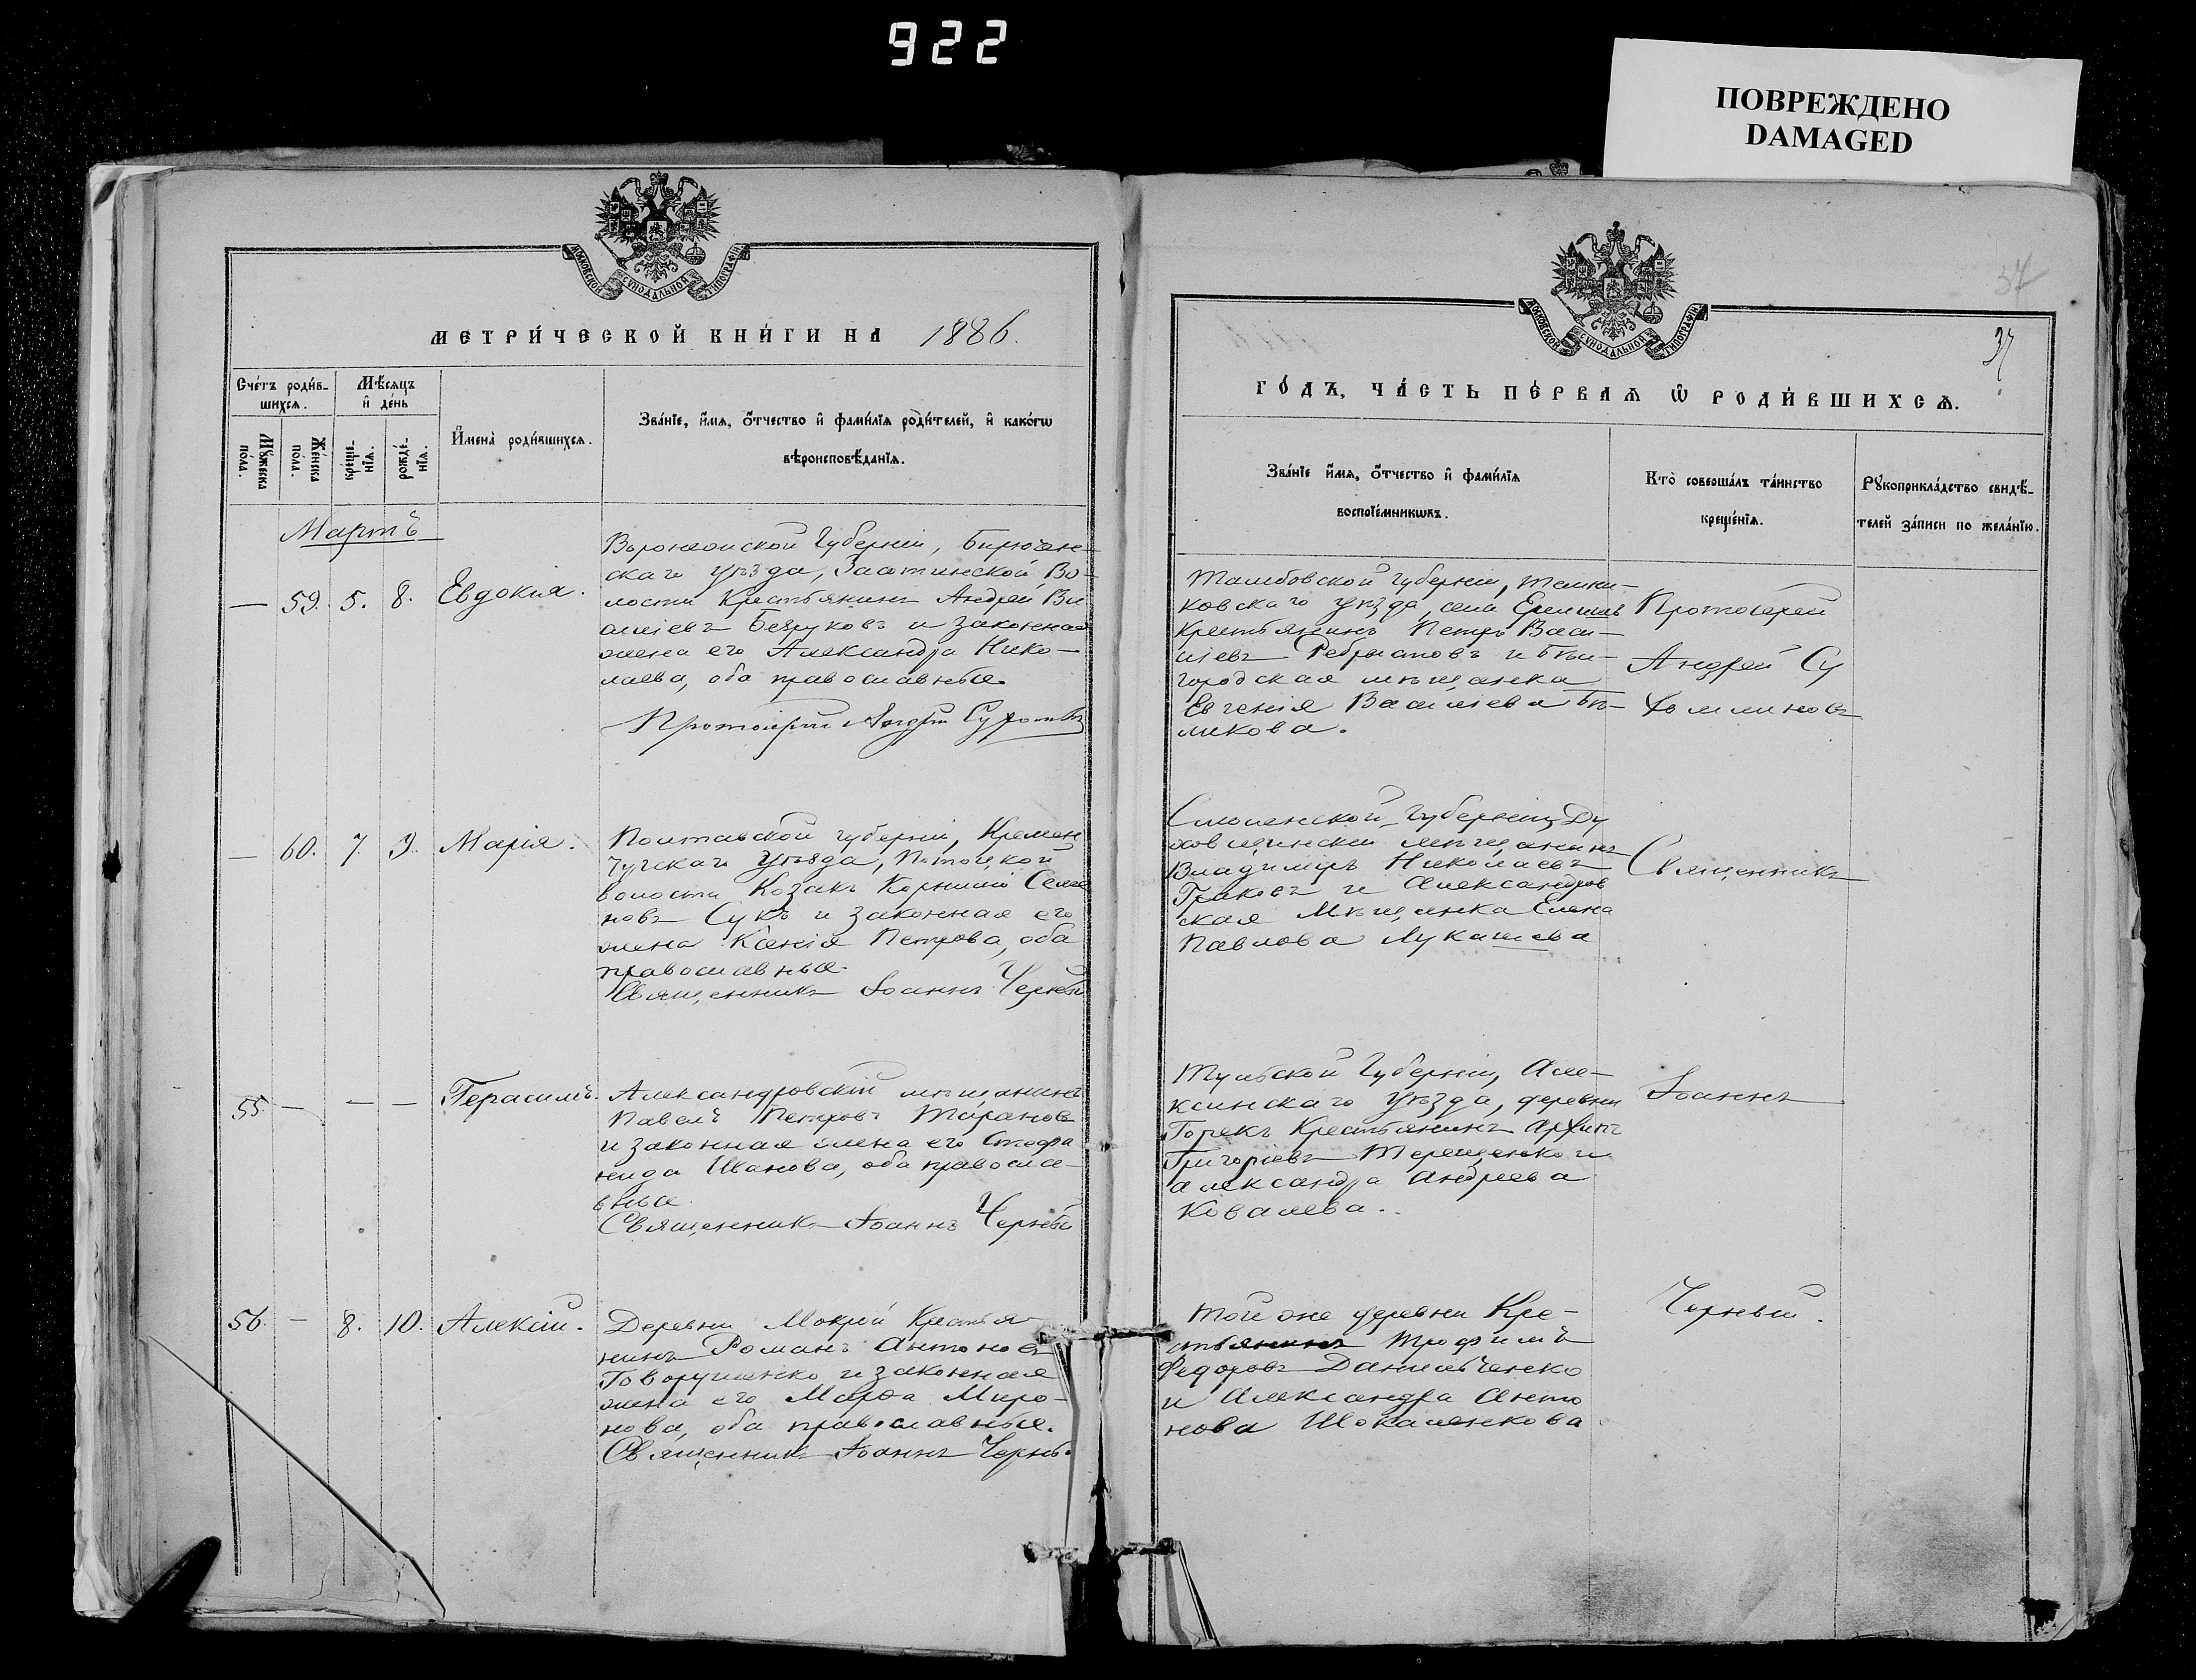 922
ПОВРЕЖДЕНО
DAMAGED
МОСКОВСКОЙ СѴНОДАЛЬНОЙ ТИПОГРАФІИ
МЕТРИ́ЧЕСКОЙ КНИ́ГИ НА 1886.
Сче́тъ роди́в-
шихсѧ.
Мѣ́сѧцъ
и҆ де́нь
Мꙋ́жеска
по́ла.
Же́нска
по́ла.
креще́-
нїѧ.
рожде́-
нїѧ.
И҆мена̀ роди́вшихсѧ.
Зва́нїе, и҆́мѧ, ѻ҆́тчество и҆ фами́лїѧ роди́телей, и҆ како́гѡ
вѣроисповѣ́данїѧ.
Мартъ
— 59. 5. 8. Евдокія.
Воронежской Губерніи, Бирючен-
скаго уѣзда, Волости Крестьянинъ Андрей Ва
силіевъ Безруковъ и законная
жена его Александра Нико-
лаева, оба православные.
Протоіерей Андрей
— 60. 7. 9. Марія.
Полтавской губерніи, Кремен
чугскаго уѣзда, Потоцкой
волости Козакъ Корнилій Семе
новъ Сукъ и законная его
жена Ксенія Петрова, оба
православные.
Священникъ Іоаннъ Черный
55 — — — Герасимъ.
Александровскій мѣщанинъ
Павелъ Петровъ Тарановъ
и законная жена его Стефа
нида Иванова, оба правосла-
вные.
Священникъ Іоаннъ Черный
56. — 8. 10. Алексій.
Деревни Мокрой Крестья
нинъ Романъ Антоновъ
Говорушенко и законная
жена его Марѳа Миро-
нова, оба православные.
Священникъ Іоаннъ Черны.
МОСКОВСКОЙ СѴНОДАЛЬНОЙ ТИПОГРАФІИ
37
37
ГО́ДЪ, ЧА́СТЬ ПЕ́РВАѦ Ѡ҆ РОДИ́ВШИХСѦ.
Зва́нїе и҆́мѧ, ѻ҆́тчество и҆ фами́лїѧ
воспрїе́мникѡвъ.
Кто̀ соверша́лъ та́инство
креще́нїѧ.
Рꙋкоприкла́дство свидѣ́-
телей за́писи по жела́нїю.
Тамбовской губерніи, Темни-
ковскаго уѣзда, села
Крестьянинъ Петръ Васи-
ліевъ и Бѣл-
городская мѣщанка
Евгенія Василіева Бѣ-
ликова.
Протоіерей
Андрей Су
хомлиновъ
Смоленской Губерніи, Ду
ховщинскій мѣщанинъ
Владиміръ Николаевъ
Граковъ и Александров
ская Мѣщанка Елена
Павлова Лукашева
Священникъ
Тульской Губерніи, Але-
ксинскаго уѣзда, деревни
Горекъ Крестьянинъ Архипъ
Григоріевъ Терещенко и
Александра Андреева
Ковалева.
Іоаннъ
Той же деревни Кре-
стьянинъ Трофимъ
Федоровъ Данильченко
и Александра Анто
нова Шокаленкова
Черный.